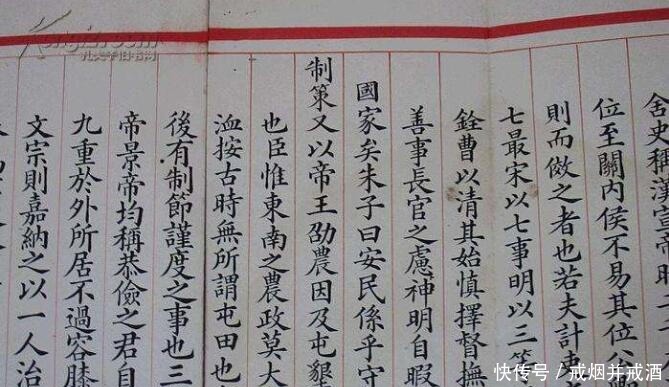 舍史稱漢宣帝時
位至關內侯不易其位
則而倣之者也若夫計吏
七最宋以七事明以三等
銓曹以清其始慎擇督撫
善事長官之慮神明自暇
國家矣朱子曰安民係乎守
制策又以帝王劭農因及屯墾
也臣惟東南之農政莫大
洫按古時無所謂屯田也
後有制節謹度之事也三
帝景帝均稱恭儉之君自
九重於外所居不過容膝
文宗則嘉納之以一人治
快传号/戒烟并戒酒